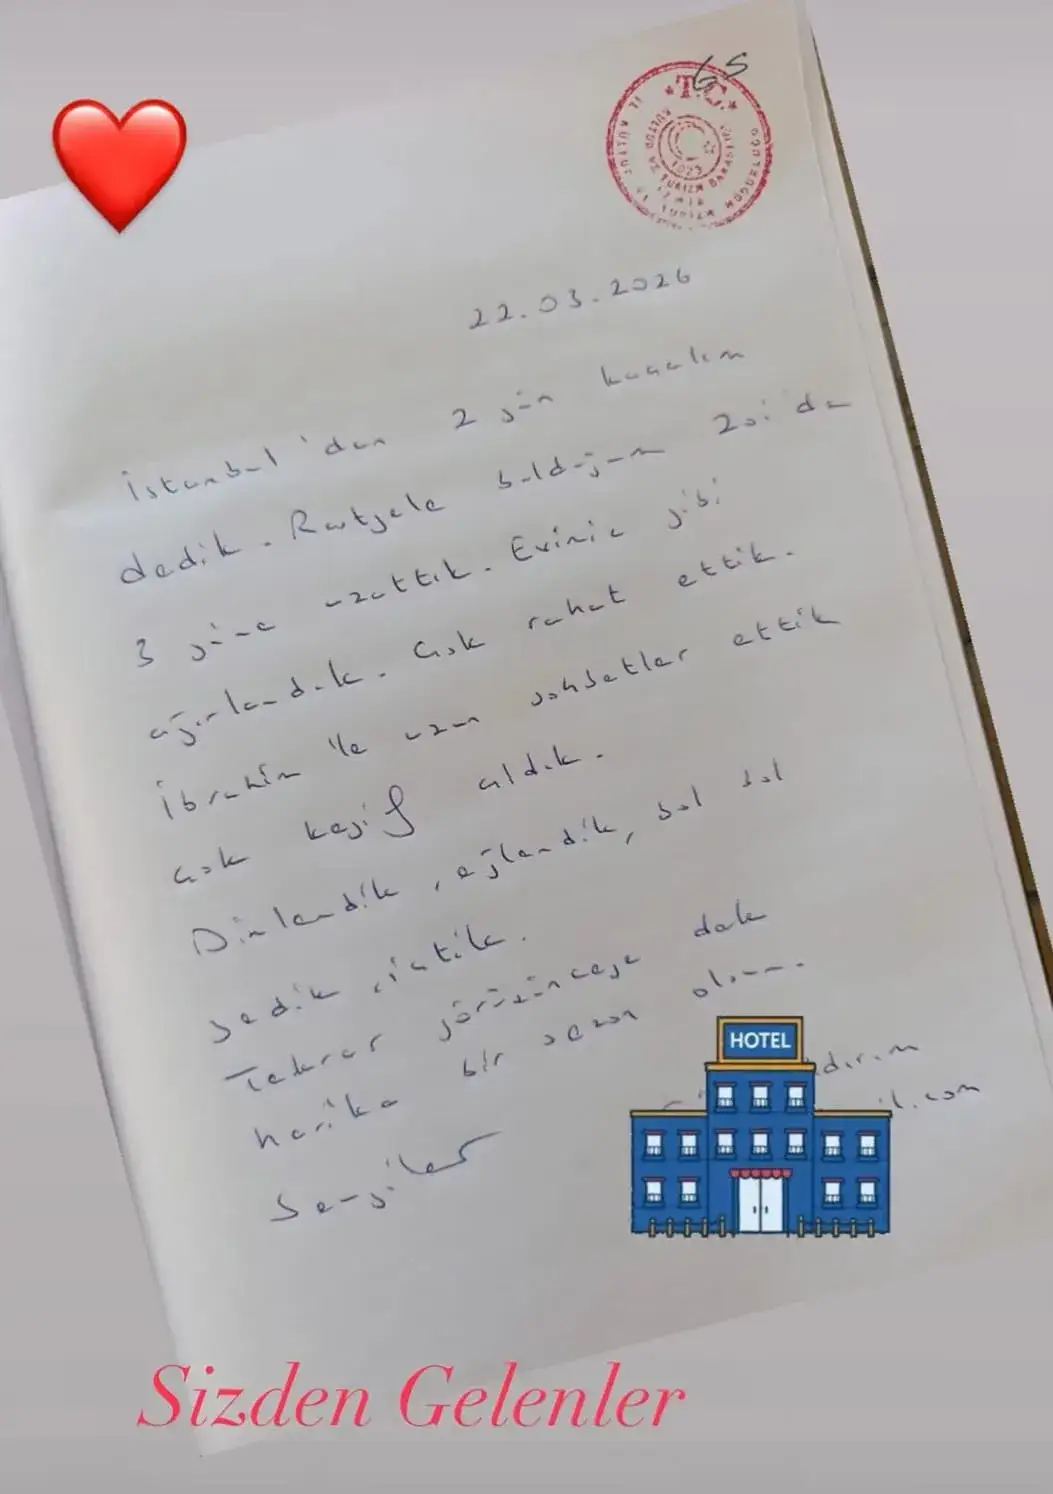 65
T.C.
KÜLTÜR VE TURİZM BAKANLIĞI
İL KÜLTÜR VE TURİZM MÜDÜRLÜĞÜ
1923
İZMİR
22.03.2026
İstanbul'dan 2 gün kaçalım
dedik. Rastgele bulduğum Zoi'da
3 güne uzattık. Eviniz gibi
ağırlandık. Çok rahat ettik.
İbrahim ile uzun sohbetler ettik
çok keyif aldık.
Dinlendik, eğlendik, bol bol
yedik, içtik.
Tekrar görüşünceye dek
harika bir sezon olsun.
Sevgiler
HOTEL
Sizden Gelenler